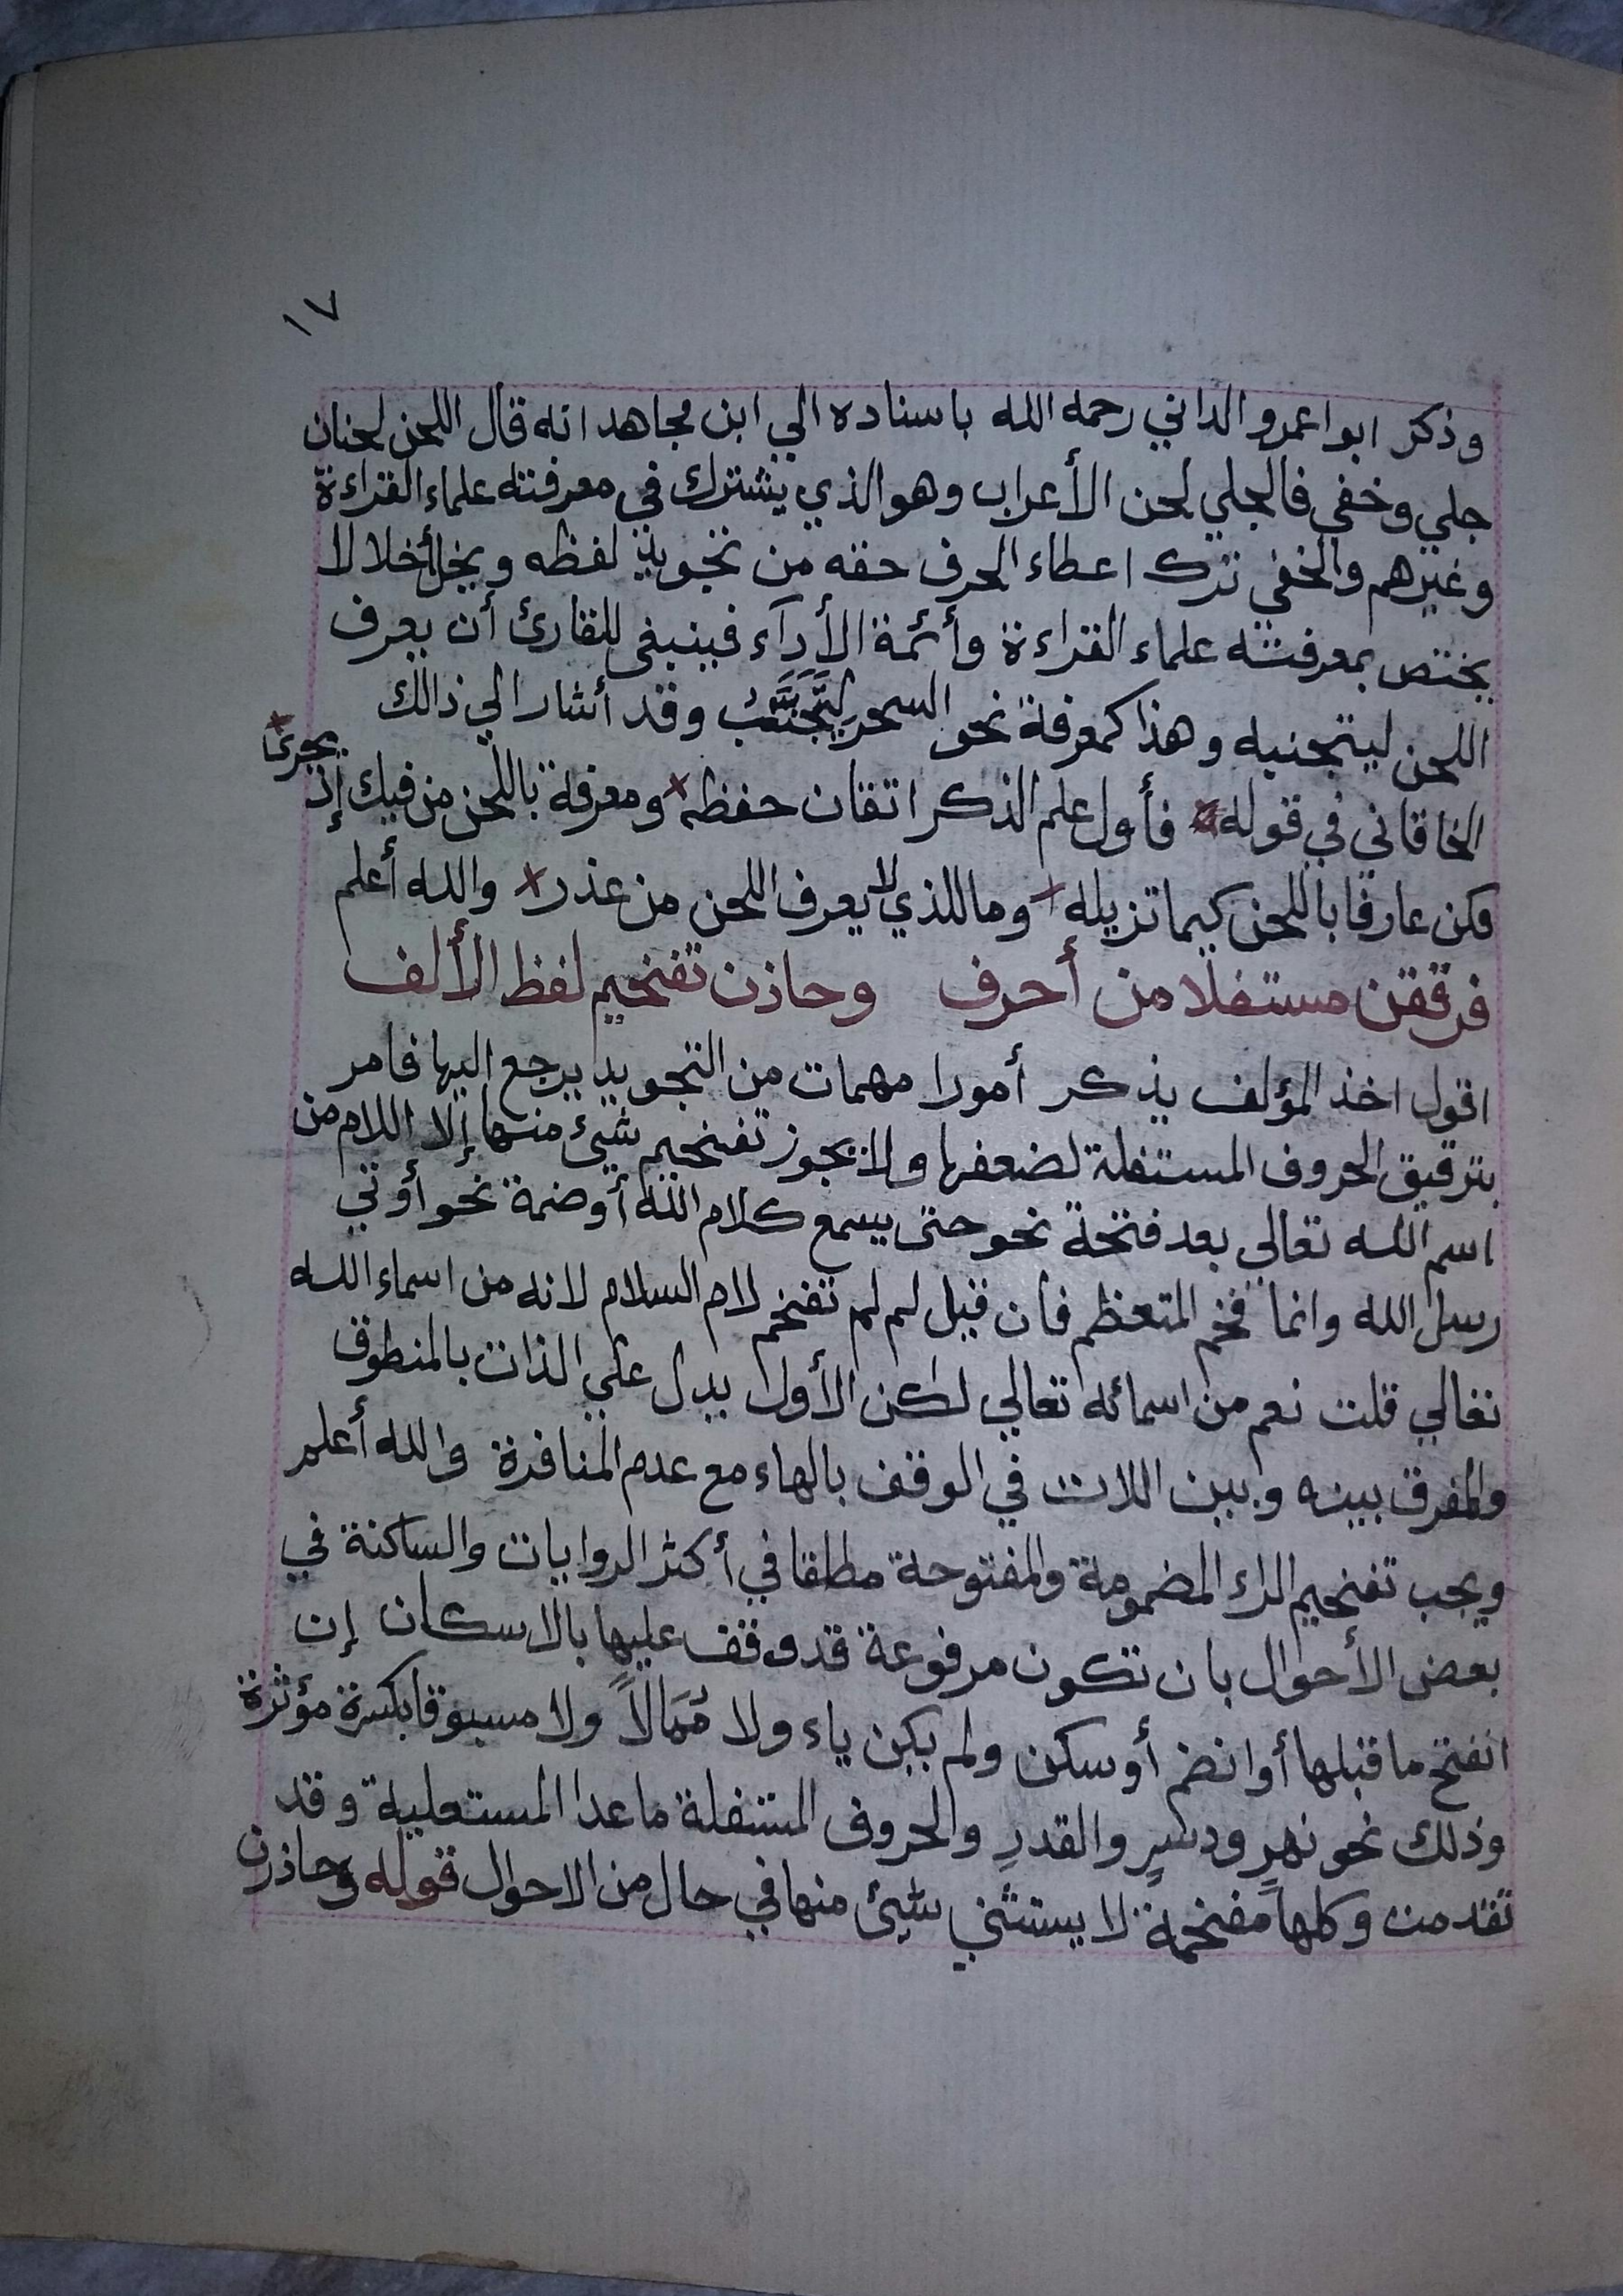 ١٧
وذكر ابوا عمرو الداني رحمه الله باسناده الي ابن مجاهد انه قال اللحن لحنان
جلي وخفي فالجلي لحن الأعراب وهو الذي يشترك في معرفته علماء القراءة
وغيرهم والخفي ترك اعطاء الحرف حقه من تجويد لفظه ويخل أخلالا
يختص بمعرفته علماء القراءة وأئمة الأدآء فينبغي للقارئ أن يعرف
اللحن ليتجنبه وهذا كمعرفة نحو السحر لِيَتَجَنَّبَ وقد أشار الي ذالك
الخاقاني في قوله فأول علم الذكر اتقان حفظه ومعرفة باللحن من فيك إذ يجري
فكن عارفا باللحن كيما تزيله وما للذي لا يعرف اللحن من عذر والله أعلم
فرققن مستفلا من أحرف وحاذرن تفخيم لفظ الألف
اقول اخذ المؤلف يذكر أمورا مهمات من التجويد يرجع اليها فامر
بترقيق الحروف المستفلة لضعفها ولا يجوز تفخيم شيئ منها إلا اللام من
اسم الله تعالي بعد فتحة نحو حتى يسمع كلام الله أو ضمة نحو أوتي
رسل الله وانما فخم المتعظم فان قيل لم لم تفخم لام السلام لانه من اسماء الله
تعالي قلت نعم من اسمائه تعالي لكن الأول يدل علي الذات بالمنطوق
والمفرق بينه وبين اللات في الوقف بالهاء مع عدم المنافرة والله أعلم
ويجب تفخيم الراء المضمومة والمفتوحة مطلقا في أكثر الروايات والساكنة في
بعض الأحوال بان تكون مرفوعة قد وقف عليها بالاسكان إن
انفتح ما قبلها أو انضم أو سكن ولم يكن ياء ولا مُمَالاً ولا مسبوقا بكسرة مؤثرة
وذلك نحو نهرٍ ودسرٍ والقدرِ والحروف المستفلة ما عدا المستعلية وقد
تقدمت وكلها مفخمة لا يستثني شيئ منها في حال من الاحوال قوله وحاذرن